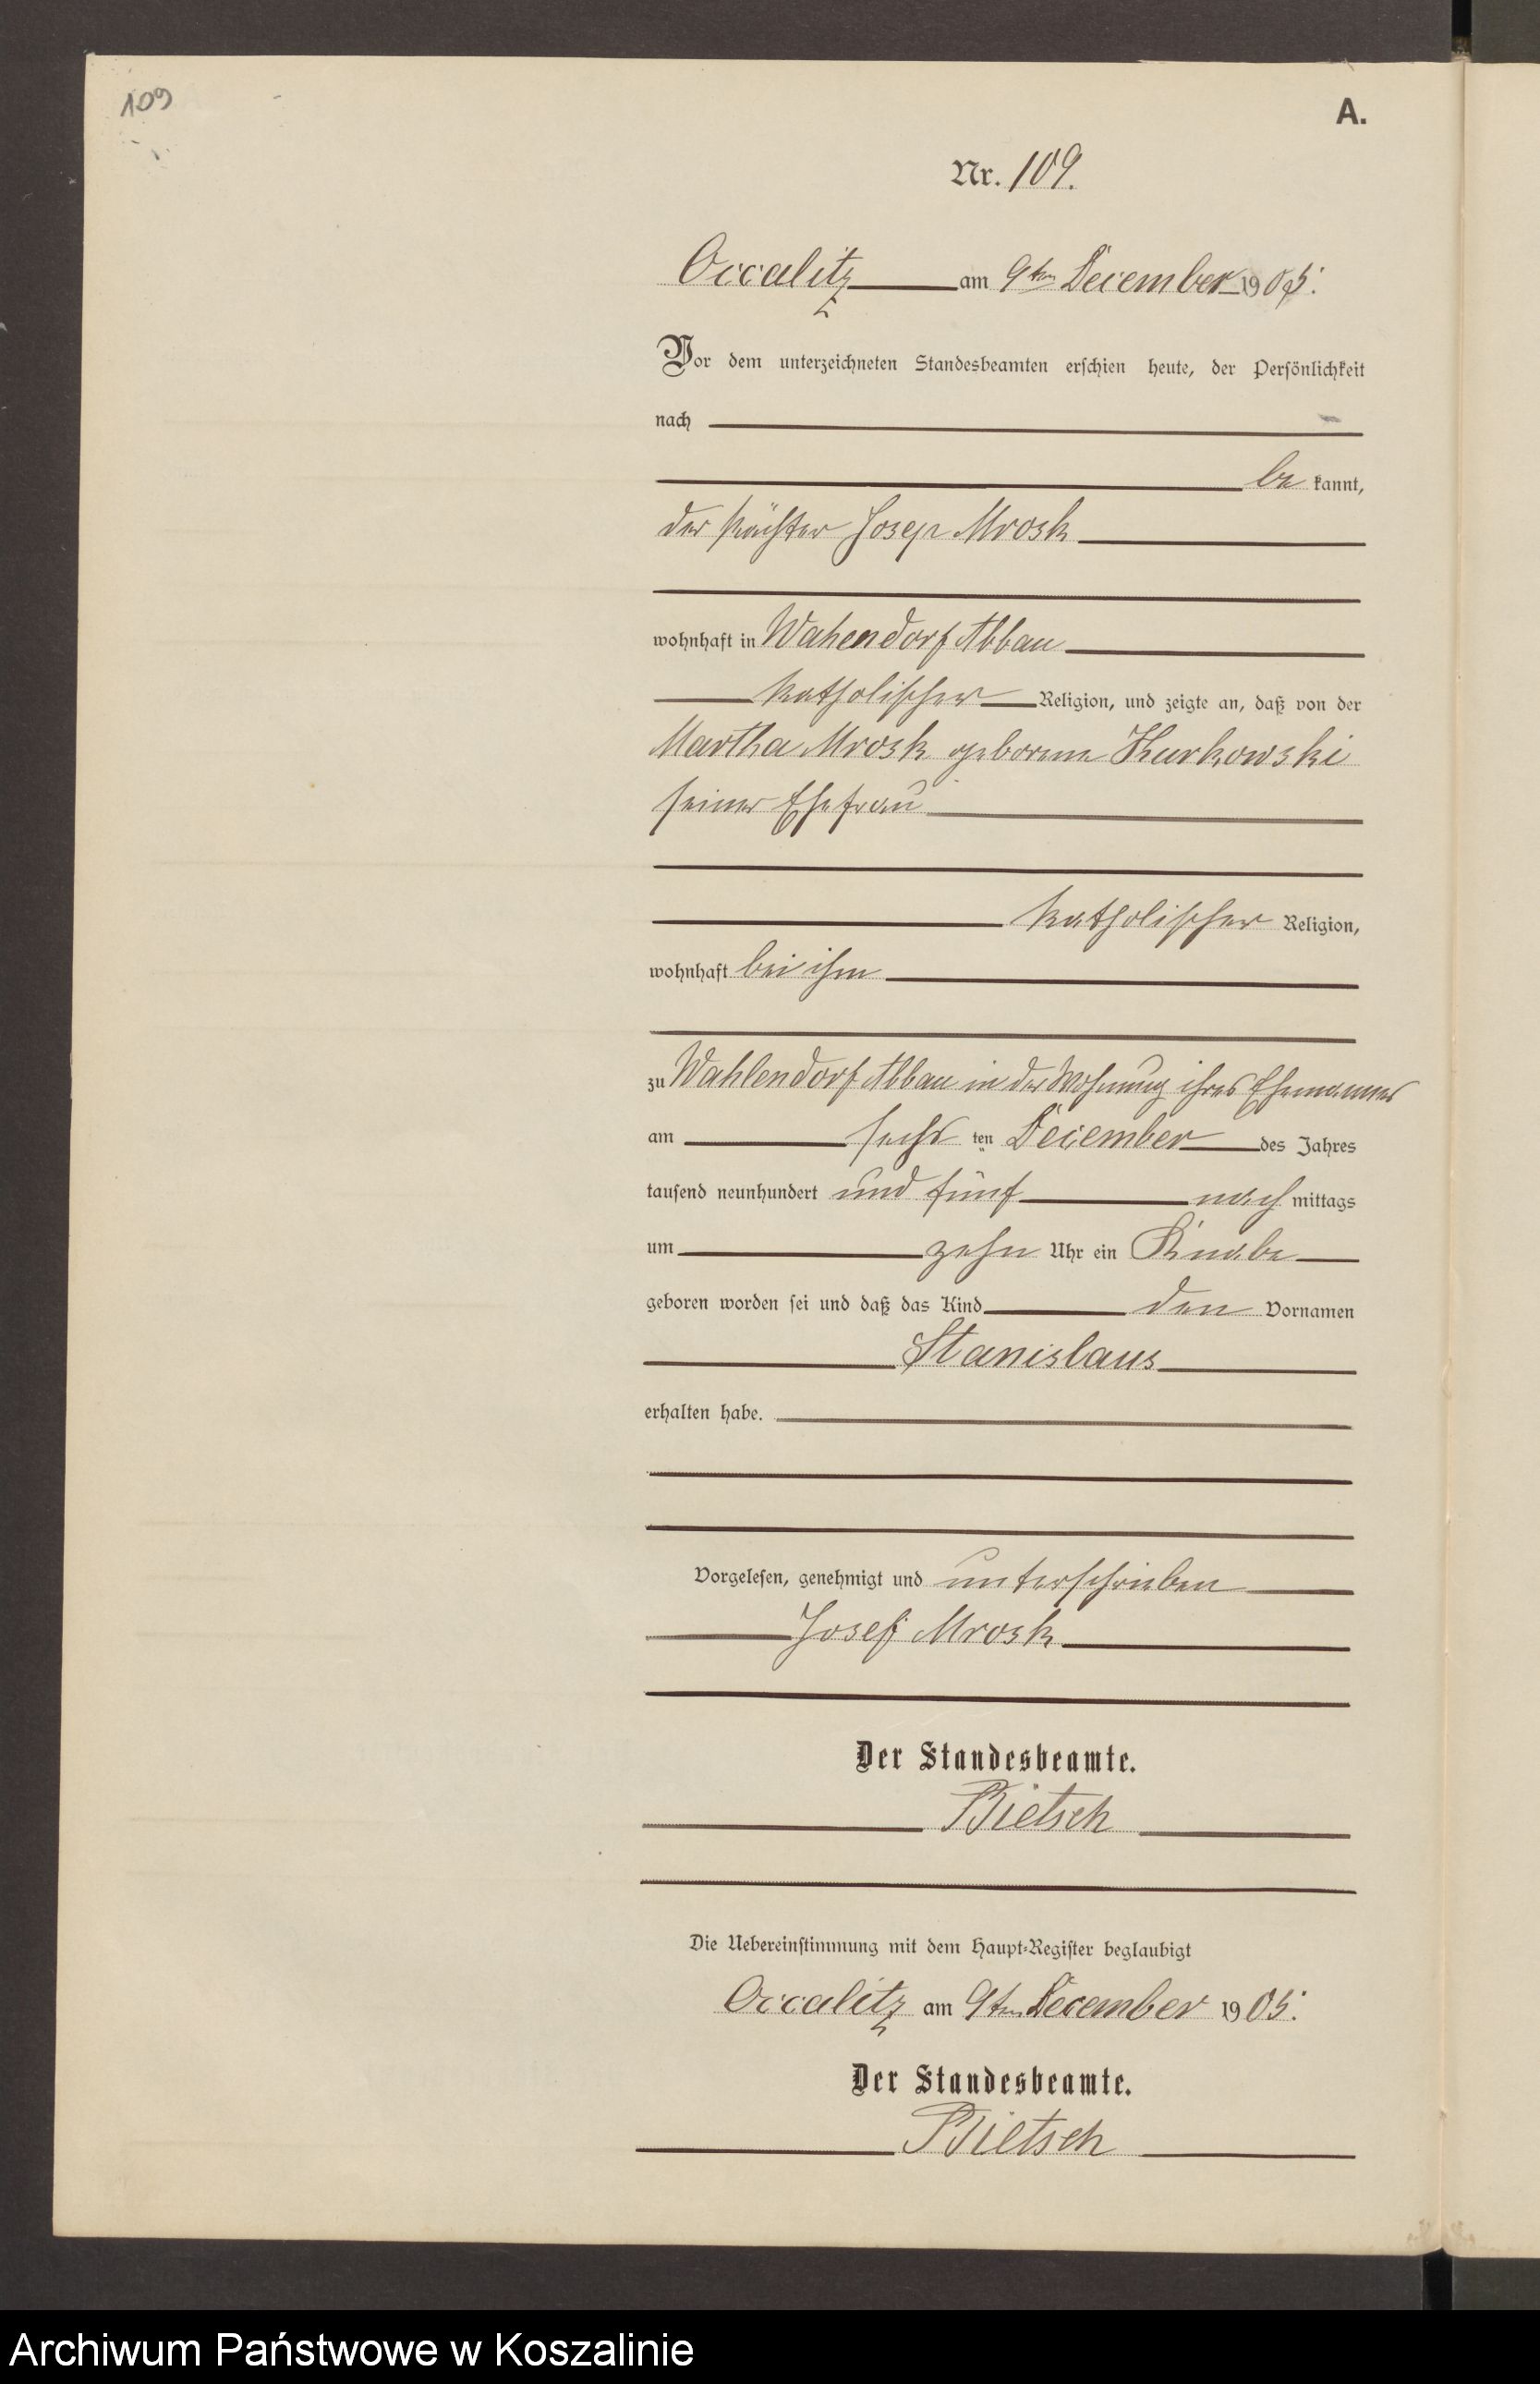 109
A.
Nr. 109.
Occalitz am 9ten December 1905.
Vor dem unterzeichneten Standesbeamten erschien heute, der Persönlichkeit
nach
be kannt,
der Pächter Josep Mrosk
wohnhaft in Wahendorf Abbau
katholischer Religion, und zeigte an, daß von der
Martha Mrosk geborene Kurkowski
seiner Ehefrau
katholischer Religion,
wohnhaft bei ihm
zu Wahlendorf Abbau in der Wohnung ihres Ehemannes
am sechs ten December des Jahres
tausend neunhundert und fünf nach mittags
um zehn Uhr ein Knabe
geboren worden sei und daß das Kind den Vornamen
Stanislaus
erhalten habe.
Vorgelesen, genehmigt und unterschrieben
Josef Mrosk
Der Standesbeamte.
Bietsch
Die Uebereinstimmung mit dem Haupt-Register beglaubigt
Occalitz am 9ten December 1905.
Der Standesbeamte.
Bietsch
Archiwum Państwowe w Koszalinie